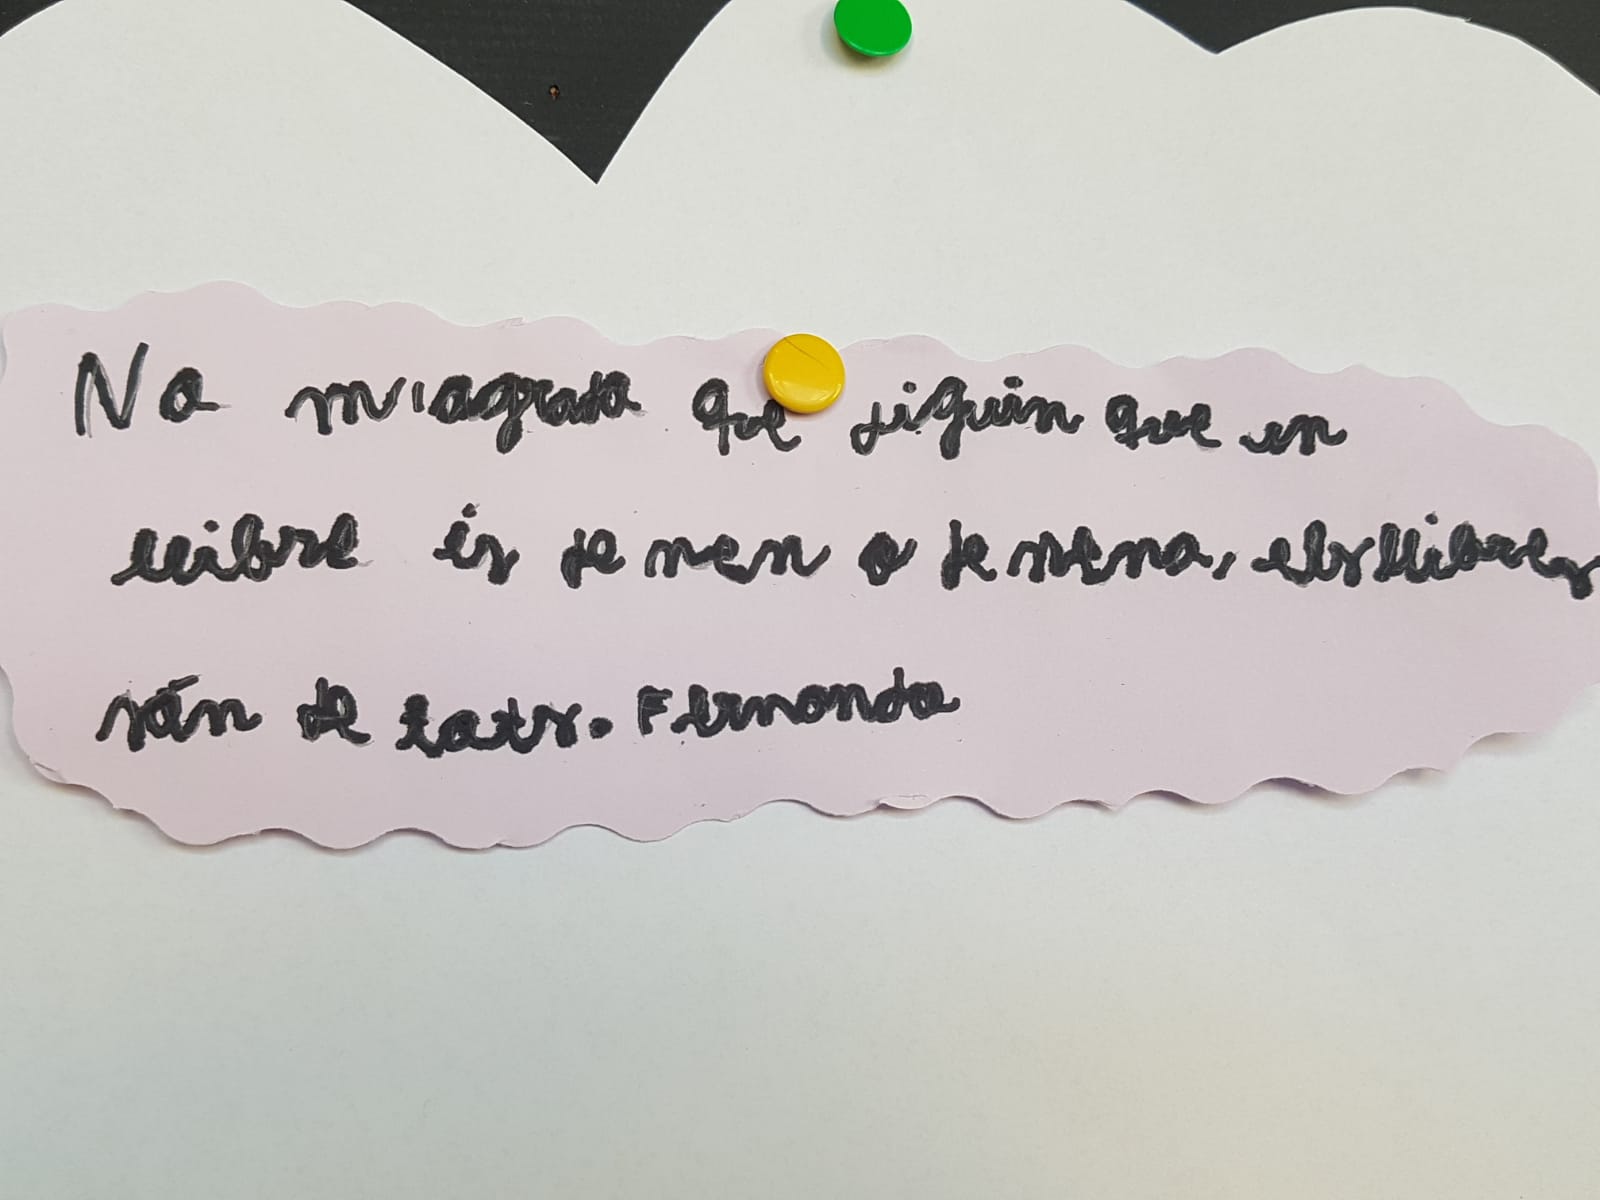 No m'agrada que diguin que un
llibre és de nen o de nena, els llibres
són de tots. Fernanda